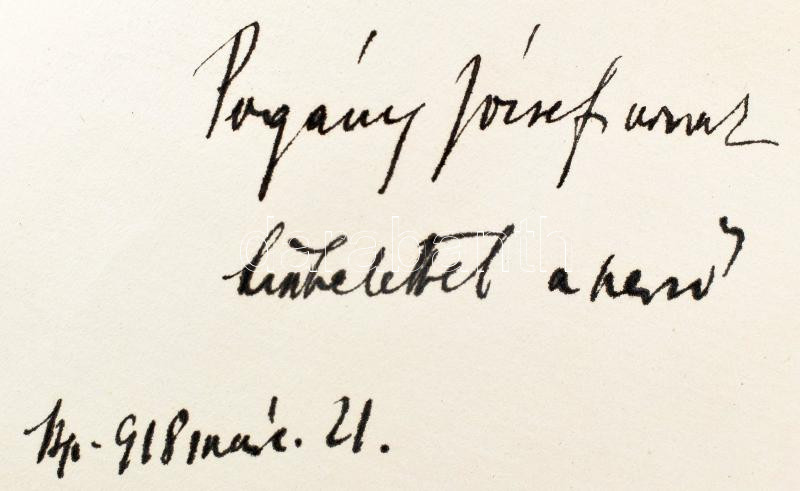 Pogány József urnak
tisztelettel a szerző
Bp. 918 márc. 21.
darabanth